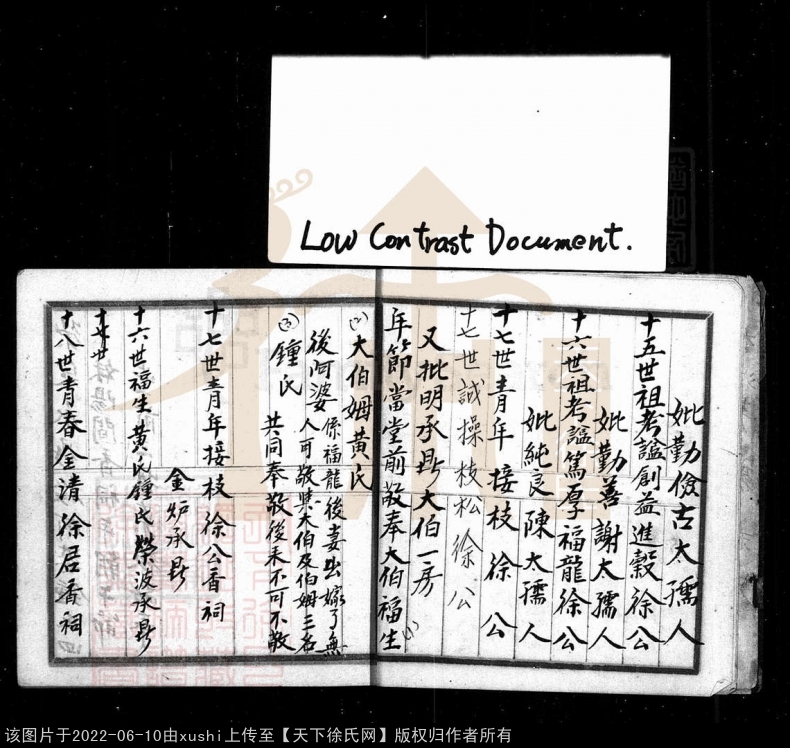 Low Contrast Document.
妣勤儉古太孺人
十五世祖考謚創益進毅徐公
妣勤善謝太孺人
十六世祖考謚篤厚福龍徐公
妣純良陳太孺人
十七世青年接枝徐公
十七世誠操枝松徐公
又批明承昴大伯一房
年節當堂前敬奉大伯福生(1)
(2)大伯姆黃氏
後阿婆係福龍後妻出嫁了無
人可敬共大伯及伯姆三名
(3)鍾氏
共同奉敬後来不可不敬
十七世青年接枝徐公香祠
金炉承昴
十六世福生黃氏鍾氏榮波承昴
十八世青春金清徐居香祠
该图片于2022-06-10由xushi上传至【天下徐氏网】版权归作者所有